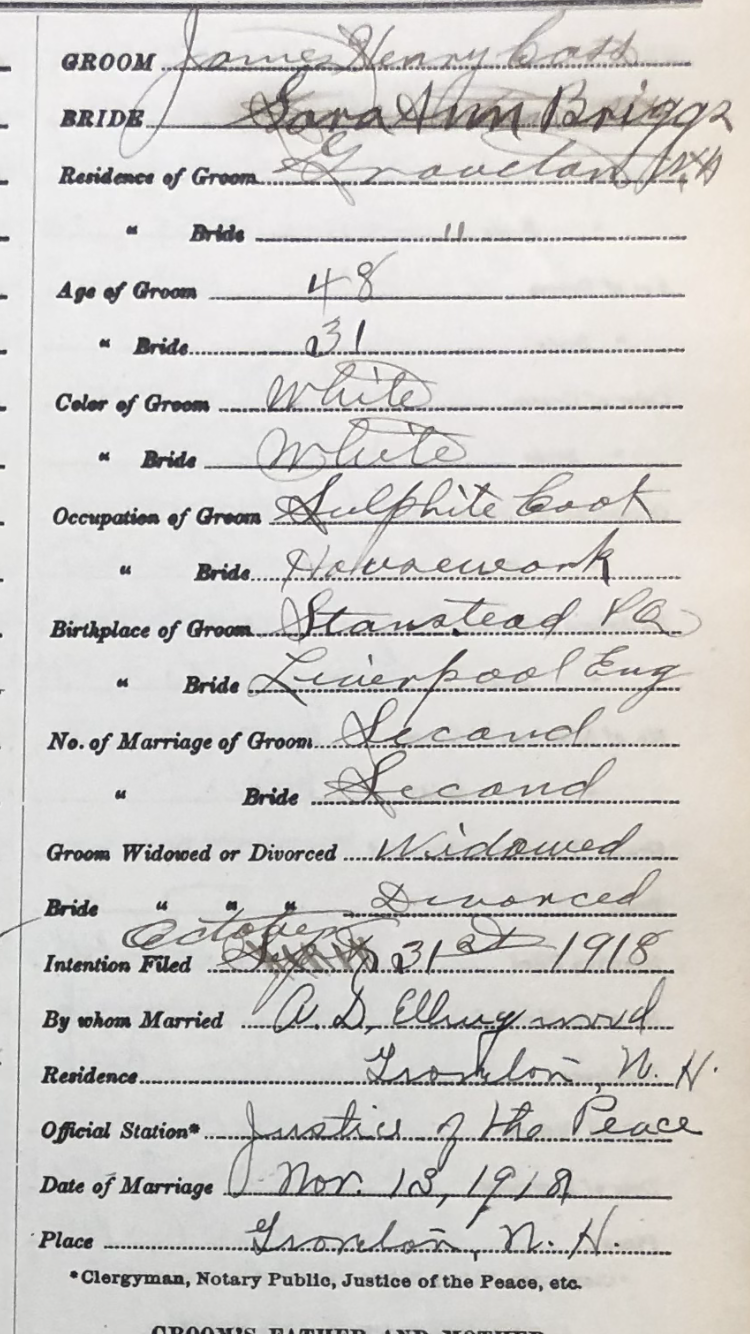 GROOM James Henry Cass
BRIDE Sara Ann Briggs
Residence of Groom Groveton N.H
" Bride "
Age of Groom 48
" Bride 31
Color of Groom White
" Bride White
Occupation of Groom Sulphite Cook
" Bride Housework
Birthplace of Groom Stanstead PQ
" Bride Liverpool Eng
No. of Marriage of Groom Second
" Bride Second
Groom Widowed or Divorced Widowed
Bride " " " Divorced
October
Intention Filed 31st 1918
By whom Married A. D. Ellingwood
Residence Groveton, N. H.
Official Station* Justice of the Peace
Date of Marriage Nov. 13, 1918
Place Groveton, N. H.
*Clergyman, Notary Public, Justice of the Peace, etc.
GROOM'S FATHER AND MOTHER